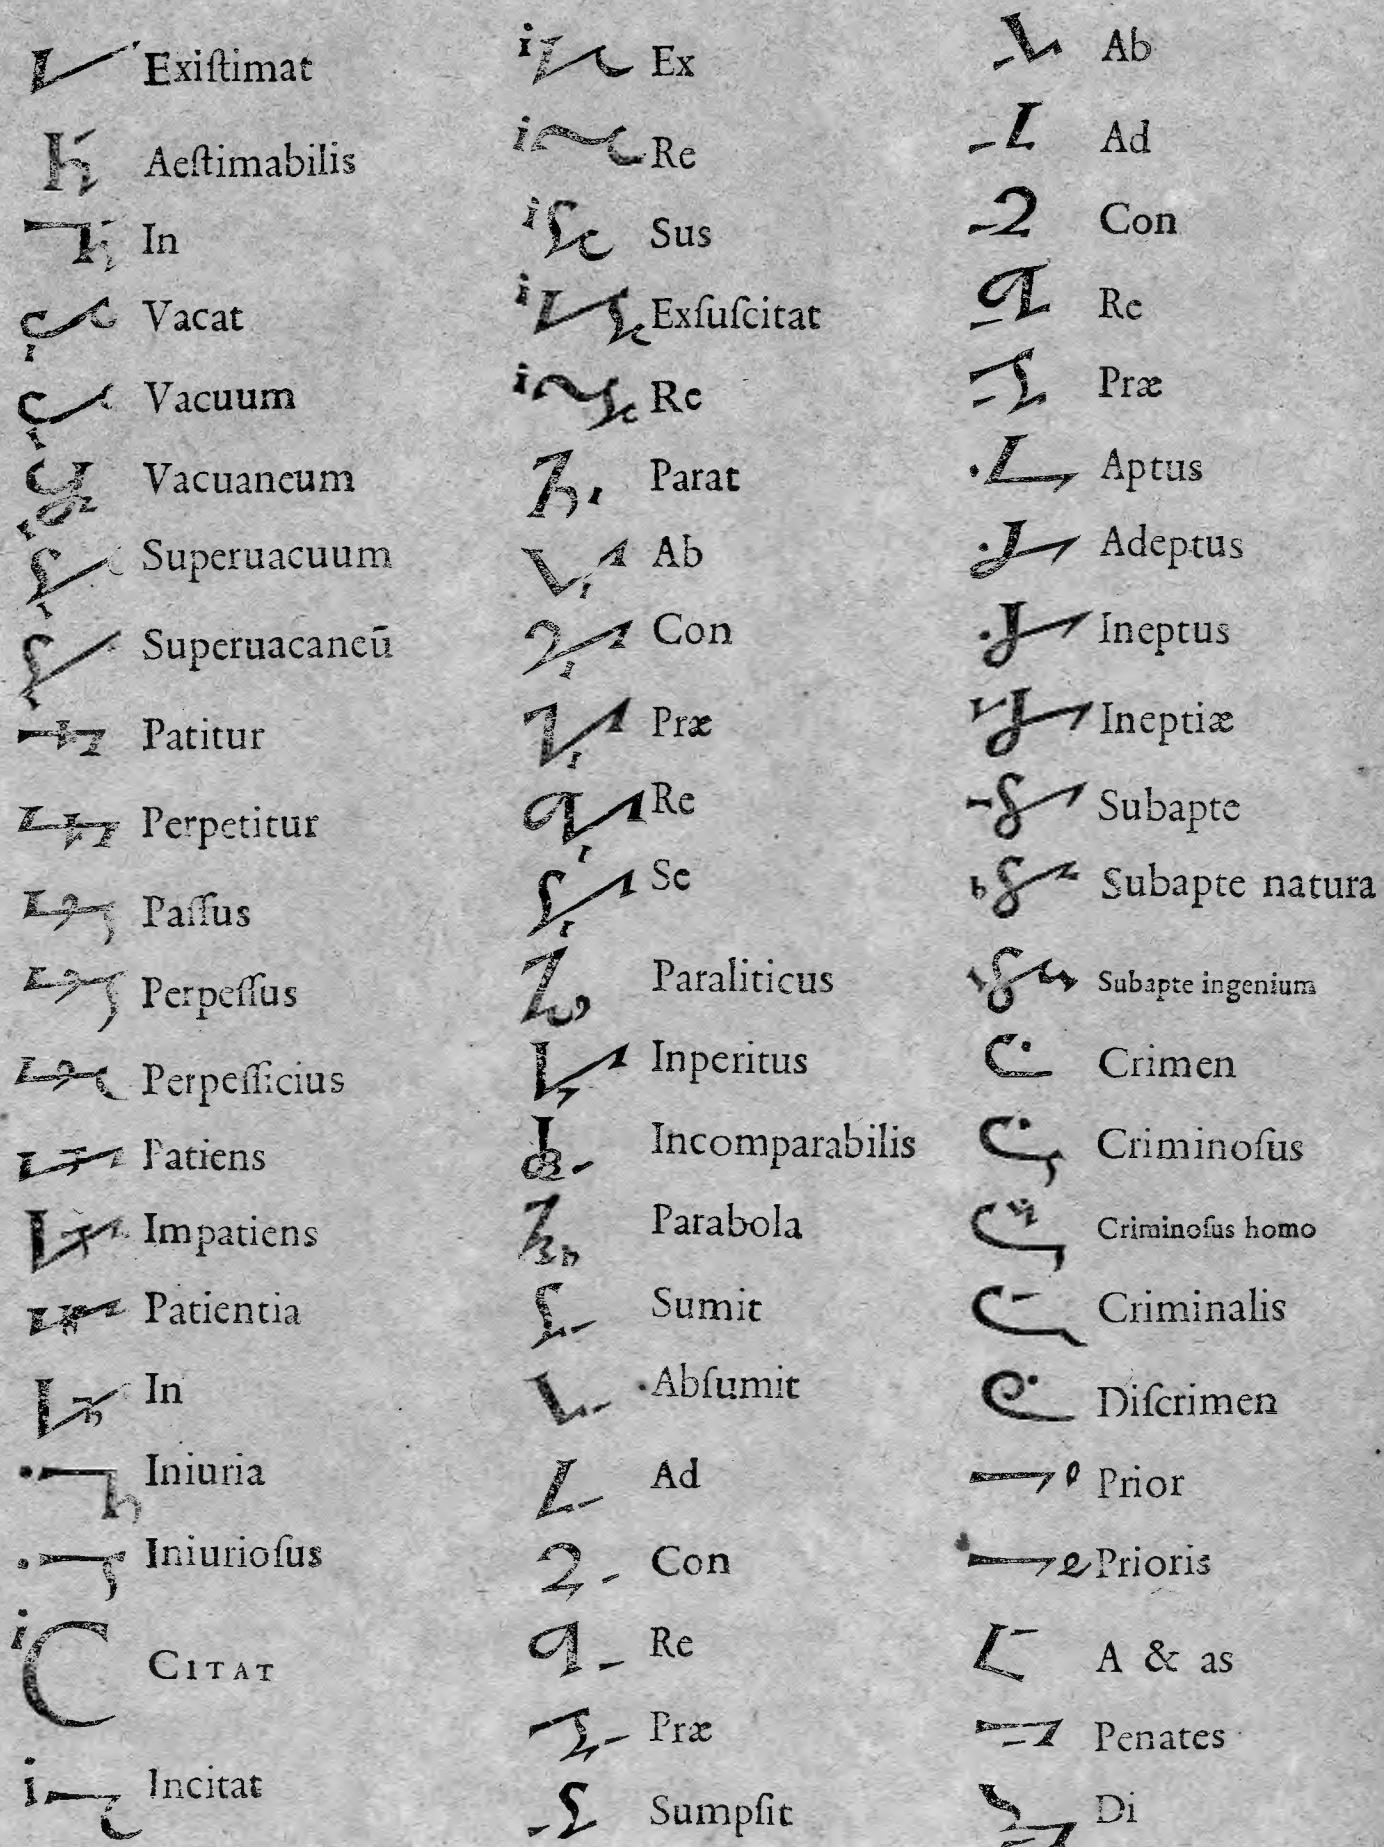 Exiſtimat
Aeſtimabilis
In
Vacat
Vacuum
Vacuaneum
Superuacuum
Superuacaneū
Patitur
Perpetitur
Paſſus
Perpeſſus
Perpeſſicius
Patiens
Impatiens
Patientia
In
Iniuria
Iniurioſus
CITAT
Incitat
Ex
Re
Sus
Exſuſcitat
Re
Parat
Ab
Con
Præ
Re
Se
Paraliticus
Inperitus
Incomparabilis
Parabola
Sumit
Abſumit
Ad
Con
Re
Præ
Sumpſit
Ab
Ad
Con
Re
Præ
Aptus
Adeptus
Ineptus
Ineptiæ
Subapte
Subapte natura
Subapte ingenium
Crimen
Criminoſus
Criminoſus homo
Criminalis
Diſcrimen
Prior
Prioris
A & as
Penates
Di